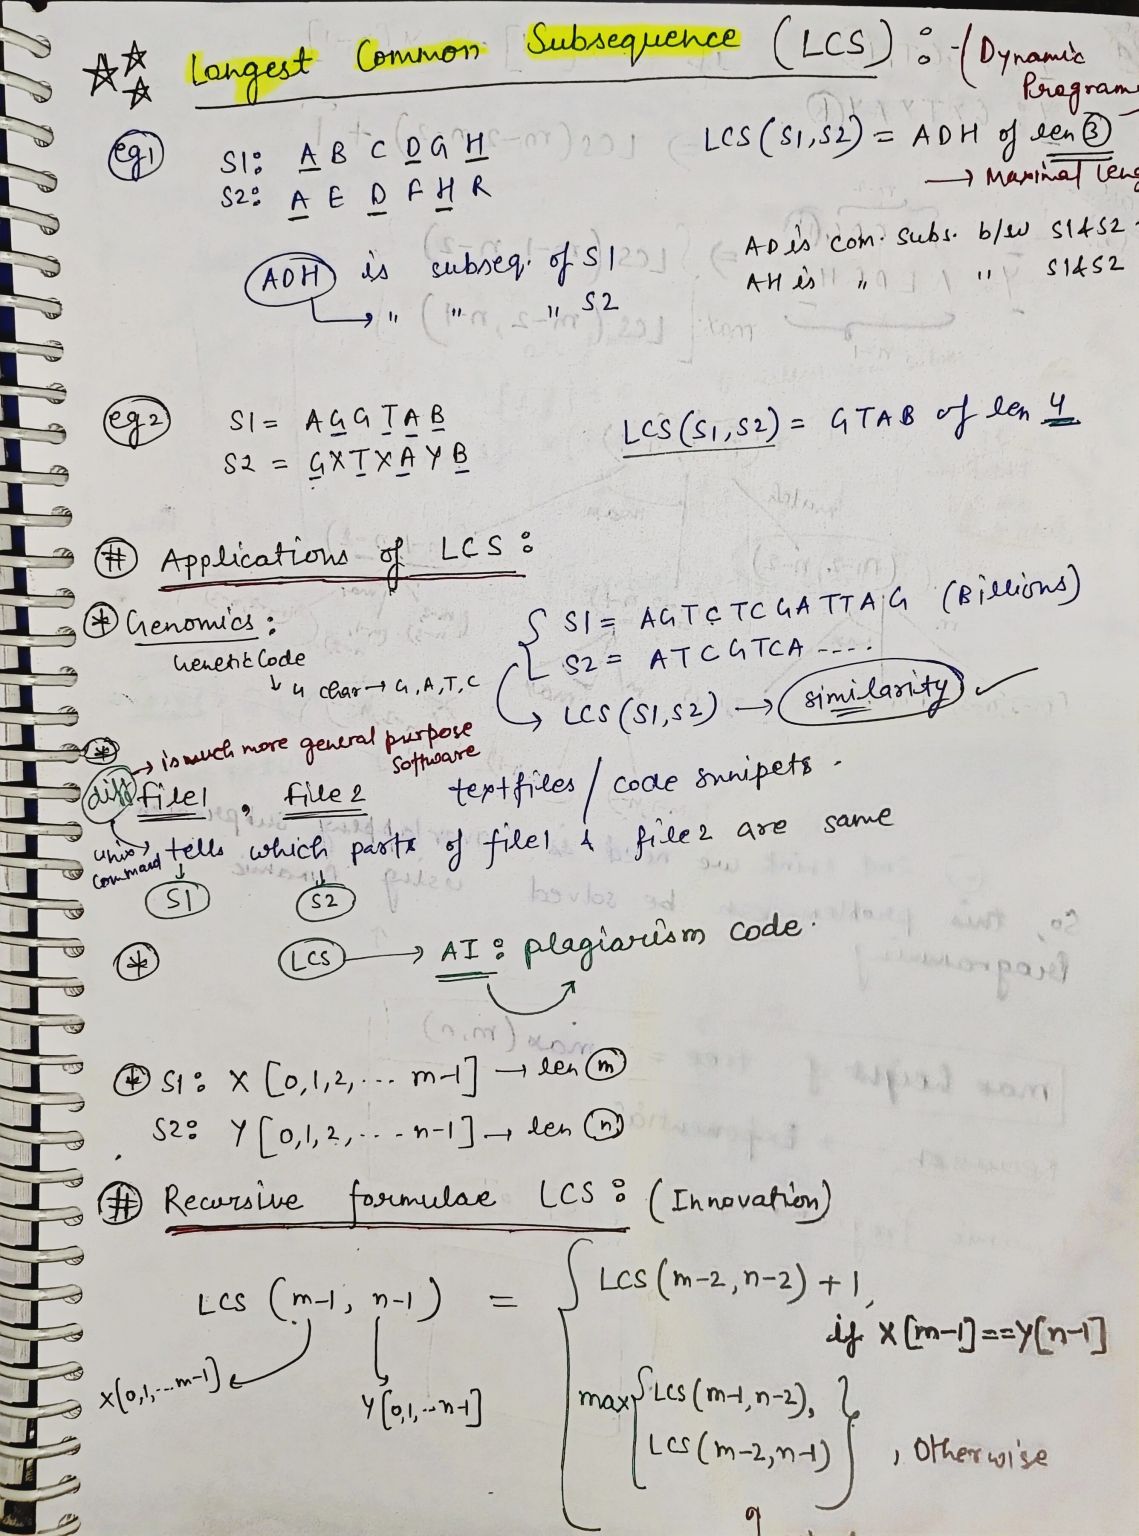 Longest Common Subsequence (LCS) : - (Dynamic
Program
eg1 S1: A B C D G H
S2: A E D F H R
LCS (S1,S2) = ADH of len 3
→ Maximal leng
ADH is subseq. of S1
→ " " " S2
AD is com. subs. b/w S1&S2
AH is " " S1&S2
eg2 S1 = AGGTAB
S2 = GXTXAYB
LCS(S1,S2) = GTAB of len 4
# Applications of LCS :
* Genomics :
Genetic Code
↳ 4 char → G,A,T,C
S1 = AGTCTCGATTAG (Billions)
S2 = ATCGTCA ----.
↳ LCS (S1,S2) → similarity ✓
* → is much more general purpose
Software
diff file1 , file2 textfiles / code snnipets.
unix command → tells which parts of file1 & file2 are same
S1 S2
* LCS → AI : plagiarism code.
* S1: X [0,1,2,... m-1] → len m
S2: Y [0,1,2,....n-1] → len n
# Recursive formulae LCS : (Innovation)
LCS (m-1, n-1) = { LCS (m-2, n-2) + 1,
if X[m-1]==Y[n-1]
X[0,1,...m-1] Y[0,1,...n-1]
max { LCS (m-1, n-2),
LCS (m-2, n-1) } , Otherwise